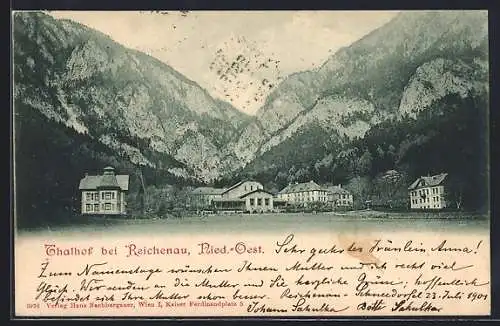 Thalhof bei Reichenau, Nied.-Oest.
Sehr geehrtes Fräulein Anna!
Zum Namenstage wünschen Ihnen Mutter und ich recht viel
Glück. Wir senden an die Mutter und Sie herzliche Grüße, hoffentl.
befindet sich Ihre Mutter schon besser. Reichenau - 23. Juli 1901
Johann Sahulka Sahulka
3924 Verlag Hans Nachbargauer, Wien I, Kaiser Ferdinandplatz 5